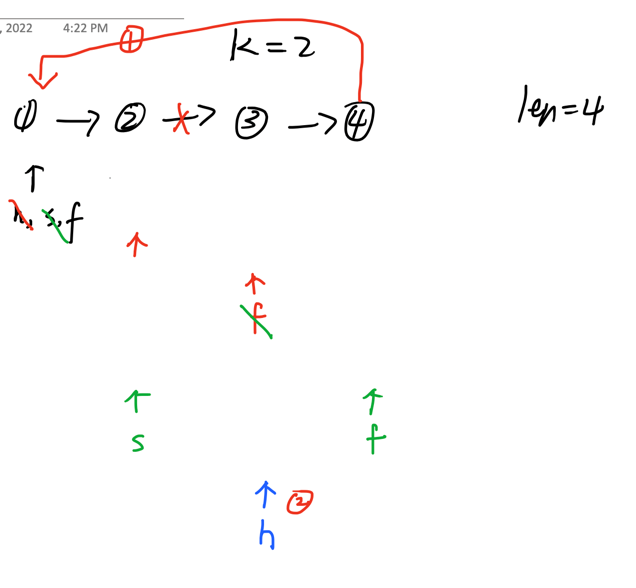 , 2022 4:22 PM
①
k=2
① → ② → ③ → ④ len=4
h, s, f
f
s f
②
h